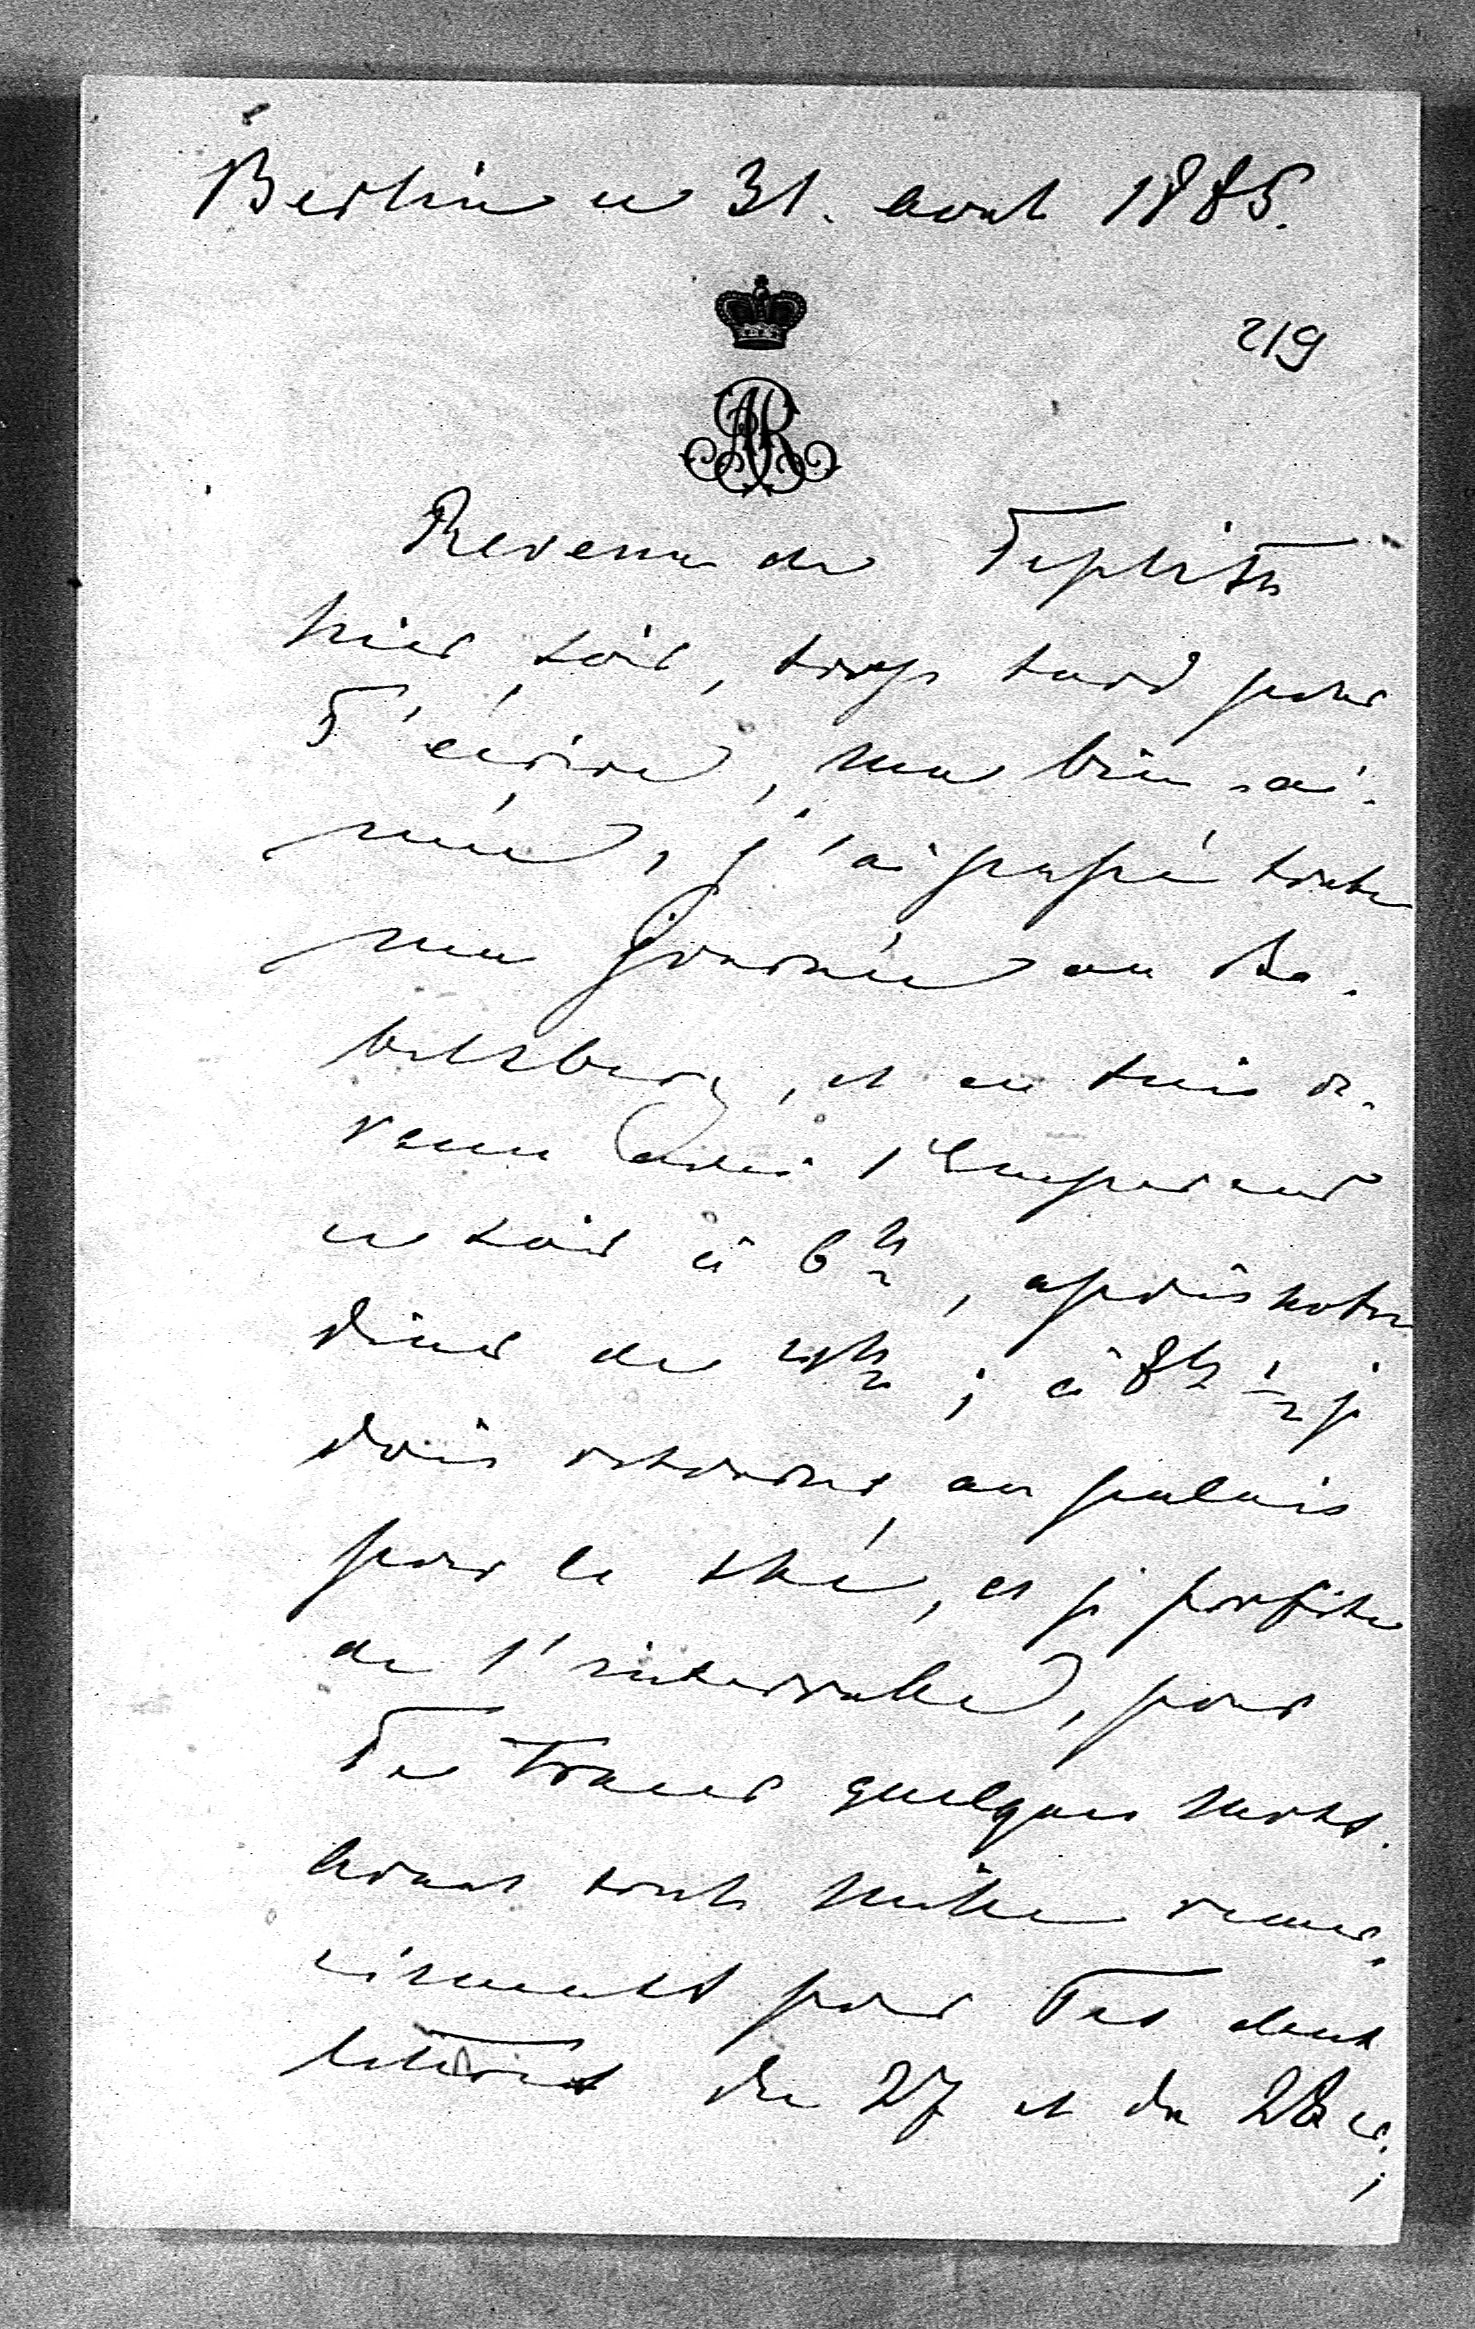 Berlin ce 31. aout 1885.
219
AR
Revenu de Teplitz
hier soir, trop tard pour
T'écrire, ma bien-ai-
mée, j'ai passé toute
ma journée au Ba-
belsberg, et en suis re-
venu avec l'Empereur
ce soir à 6h, après notre
diner de 4h; à 8h 1/2 je
dois retourner au palais
pour le thé, et je profite
de l'intervalle, pour
Te tracer quelques mots.
Avant tout mille remer-
ciments pour Tes deux
lettres du 27 et du 28 c.;